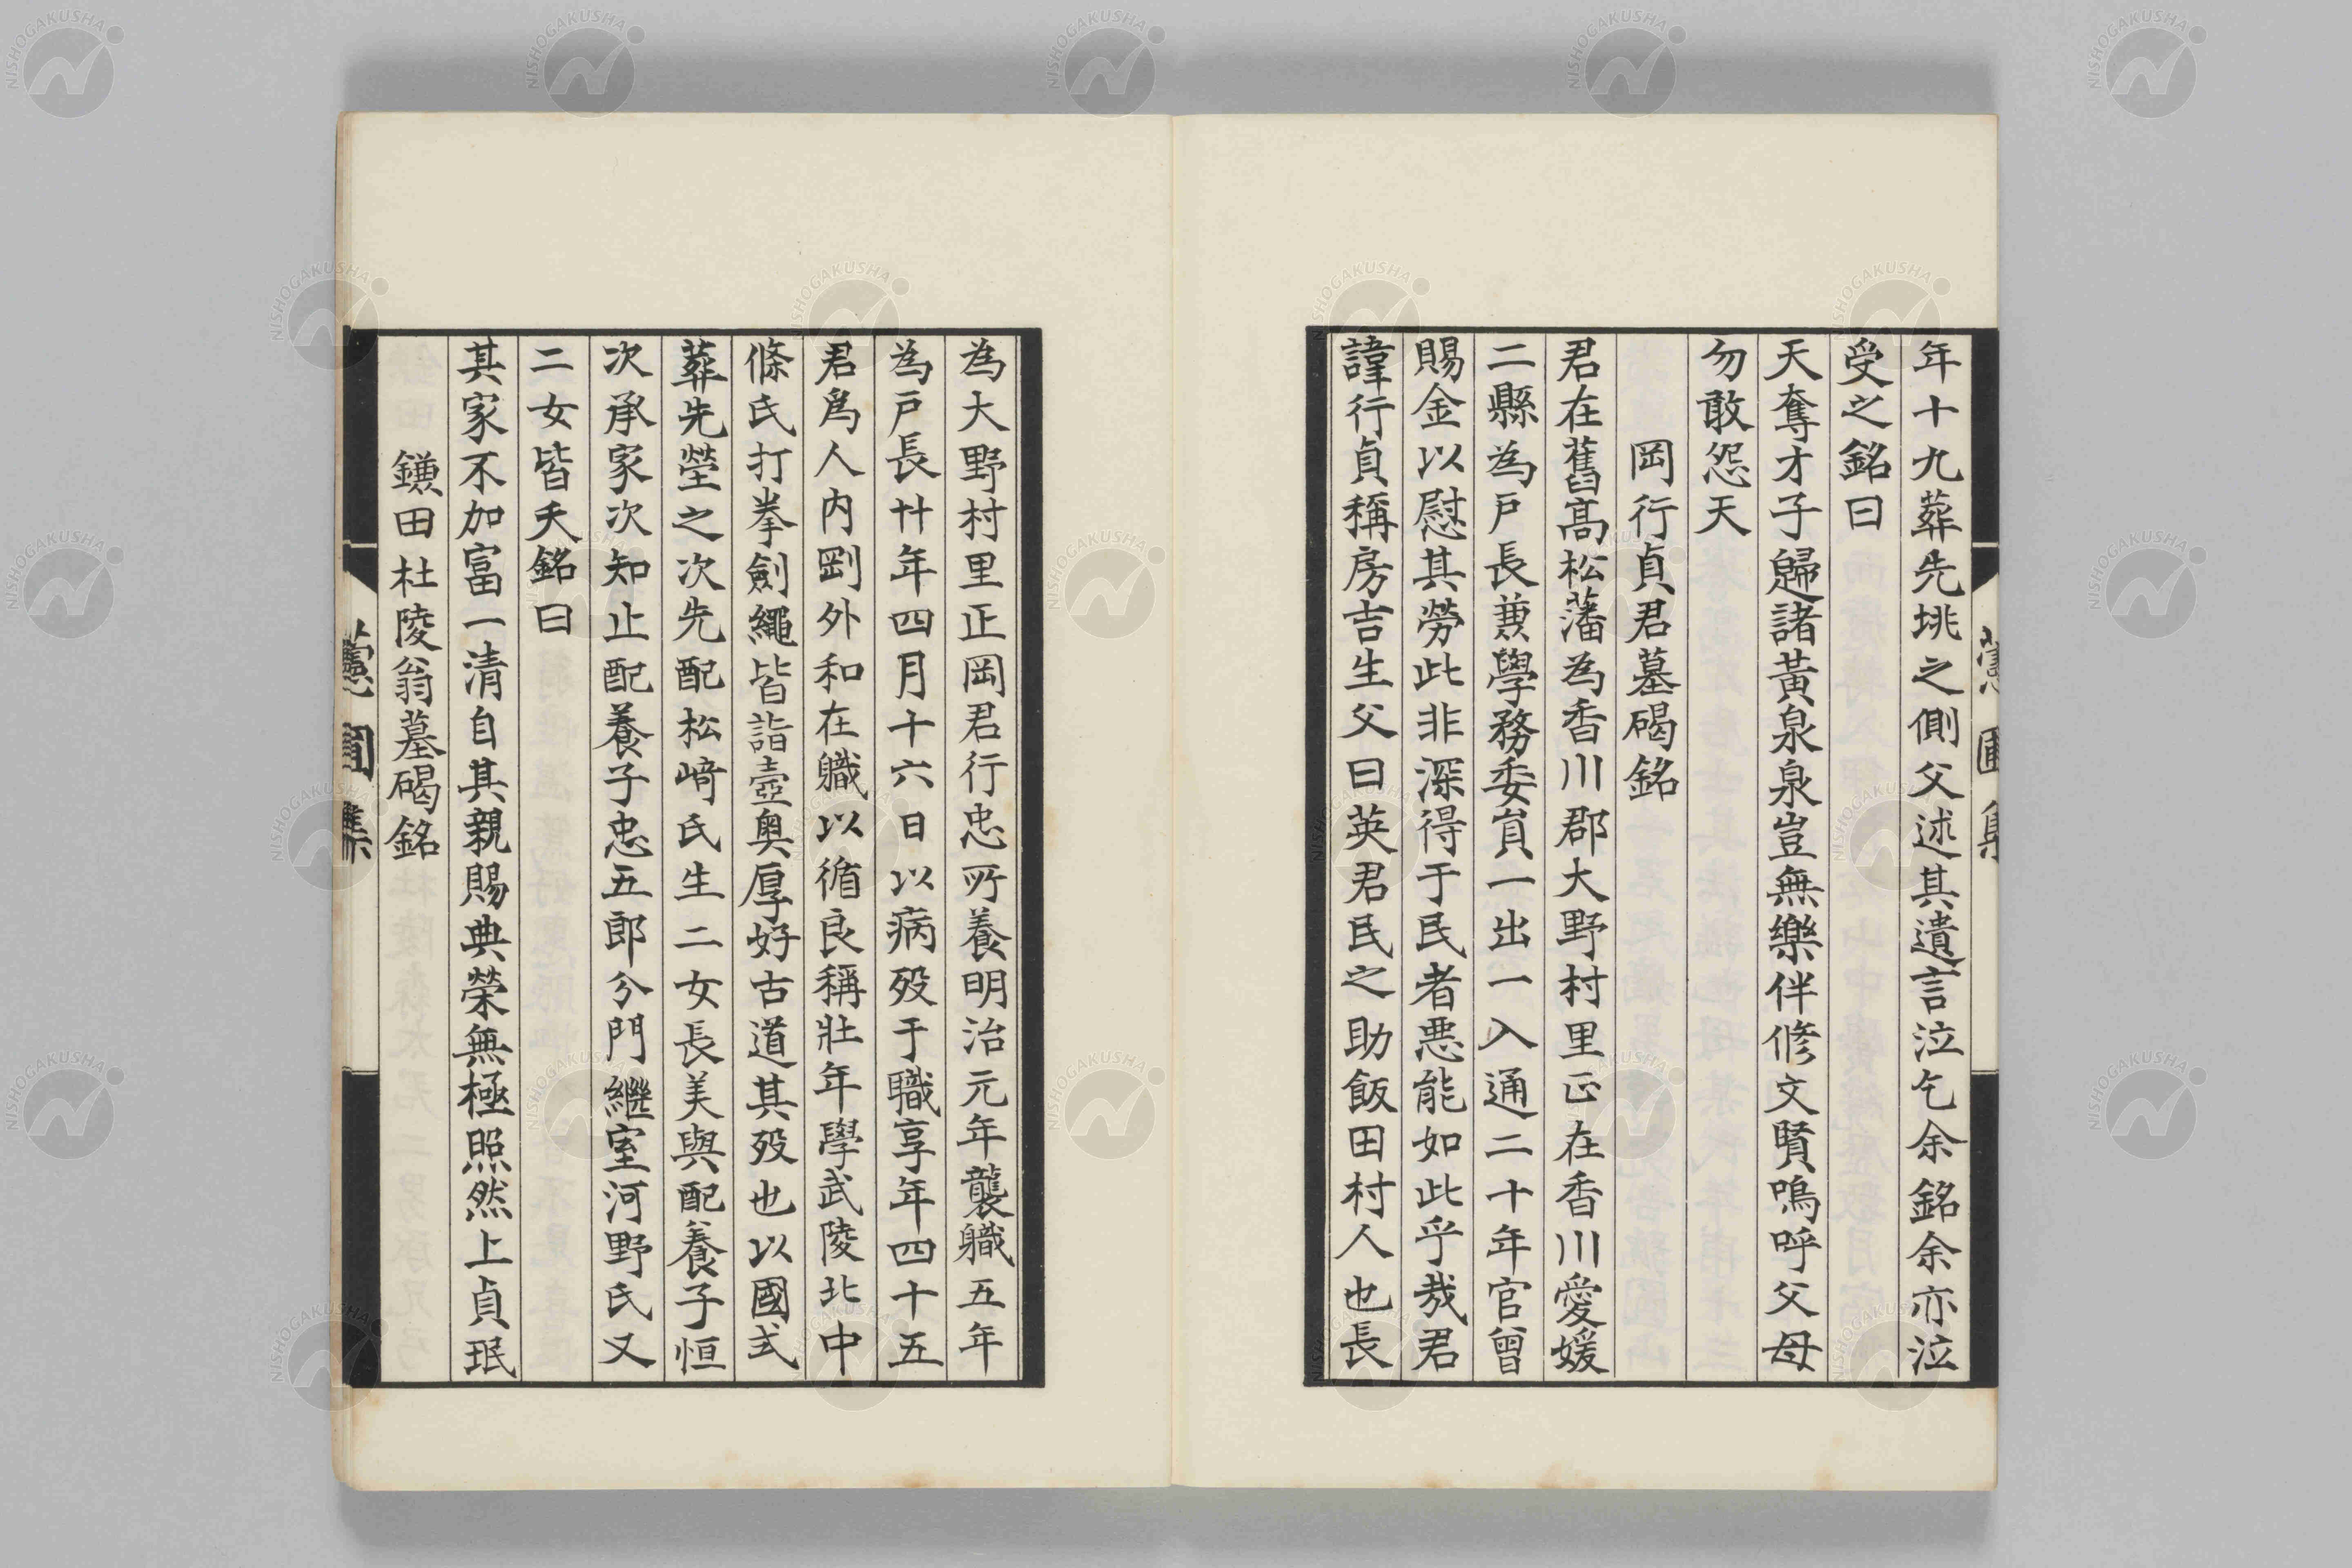 年十九葬先姚之側父述其遺言泣乞余銘余亦泣
受之銘曰
天奪才子歸諸黃泉泉豈無樂伴修文賢嗚呼父母
勿敢怨天
岡行貞君墓碣銘
君在舊髙松藩為香川郡大野村里正在香川愛媛
二縣為戸長兼學務委員一出一入通二十年官曾
賜金以慰其勞此非深得于民者悪能如此乎哉君
諱行貞稱房吉生父曰英君民之助飯田村人也長
為大野村里正岡君行忠所養明治元年襲職五年
為戸長廿年四月十六日以病歿于職享年四十五
君爲人内剛外和在職以循良稱壯年學武陵北中
條氏打拳劍繩皆詣壺奥厚好古道其歿也以國式
葬先塋之次先配松﨑氏生二女長美與配養子恒
次承家次知止配養子忠五郎分門繼室河野氏又
二女皆夭銘曰
其家不加富一清自其親賜典榮無極照然上貞珉
鎌田杜陵翁墓碣銘